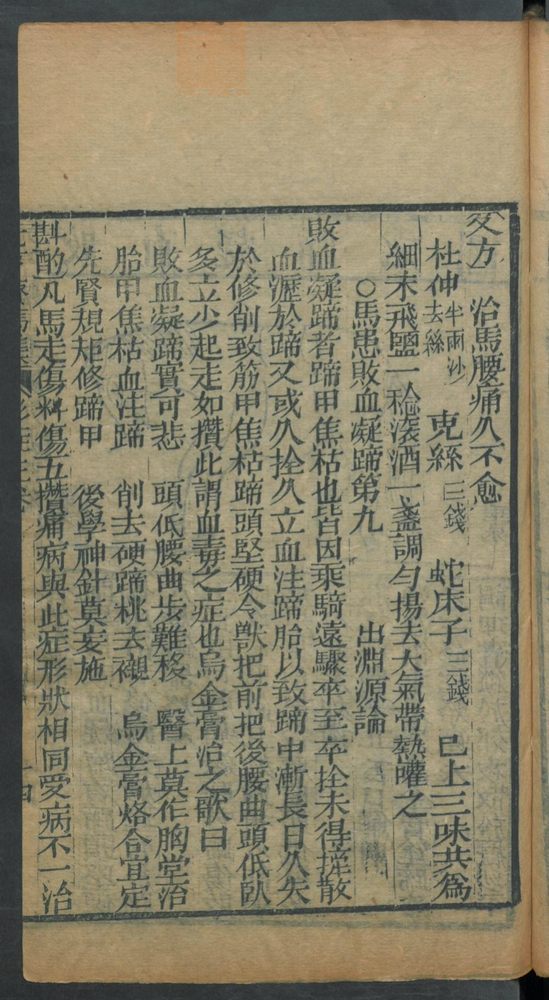 又方　治馬腰痛久不愈
杜仲半兩沙去絲　克絲三錢　蛇床子三錢　已上三味共爲
細末飛鹽一捻滚酒一盞調勻揚去大氣帶熱嚾之
○馬患敗血凝蹄第九　出淵源論
敗血凝蹄者蹄甲焦枯也皆因乘騎遠驟卒至卒拴未得揼散
血瀝於蹄又或久拴久立血注蹄胎以致蹄中漸長日久失
於修削致筋甲焦枯蹄頭堅硬令獸把前把後腰曲頭低臥
多立少起走如攢此謂血毒之症也烏金膏治之歌曰
敗血凝蹄實可悲　頭低腰曲步難移　醫上莫作胸堂治
胎甲焦枯血注蹄　削去硬蹄桃去襯　烏金膏烙合宜定
先賢規矩修蹄甲　後學神針莫妄施
斟酌凡馬走傷料傷五攢痛病與此症形狀相同受病不一治